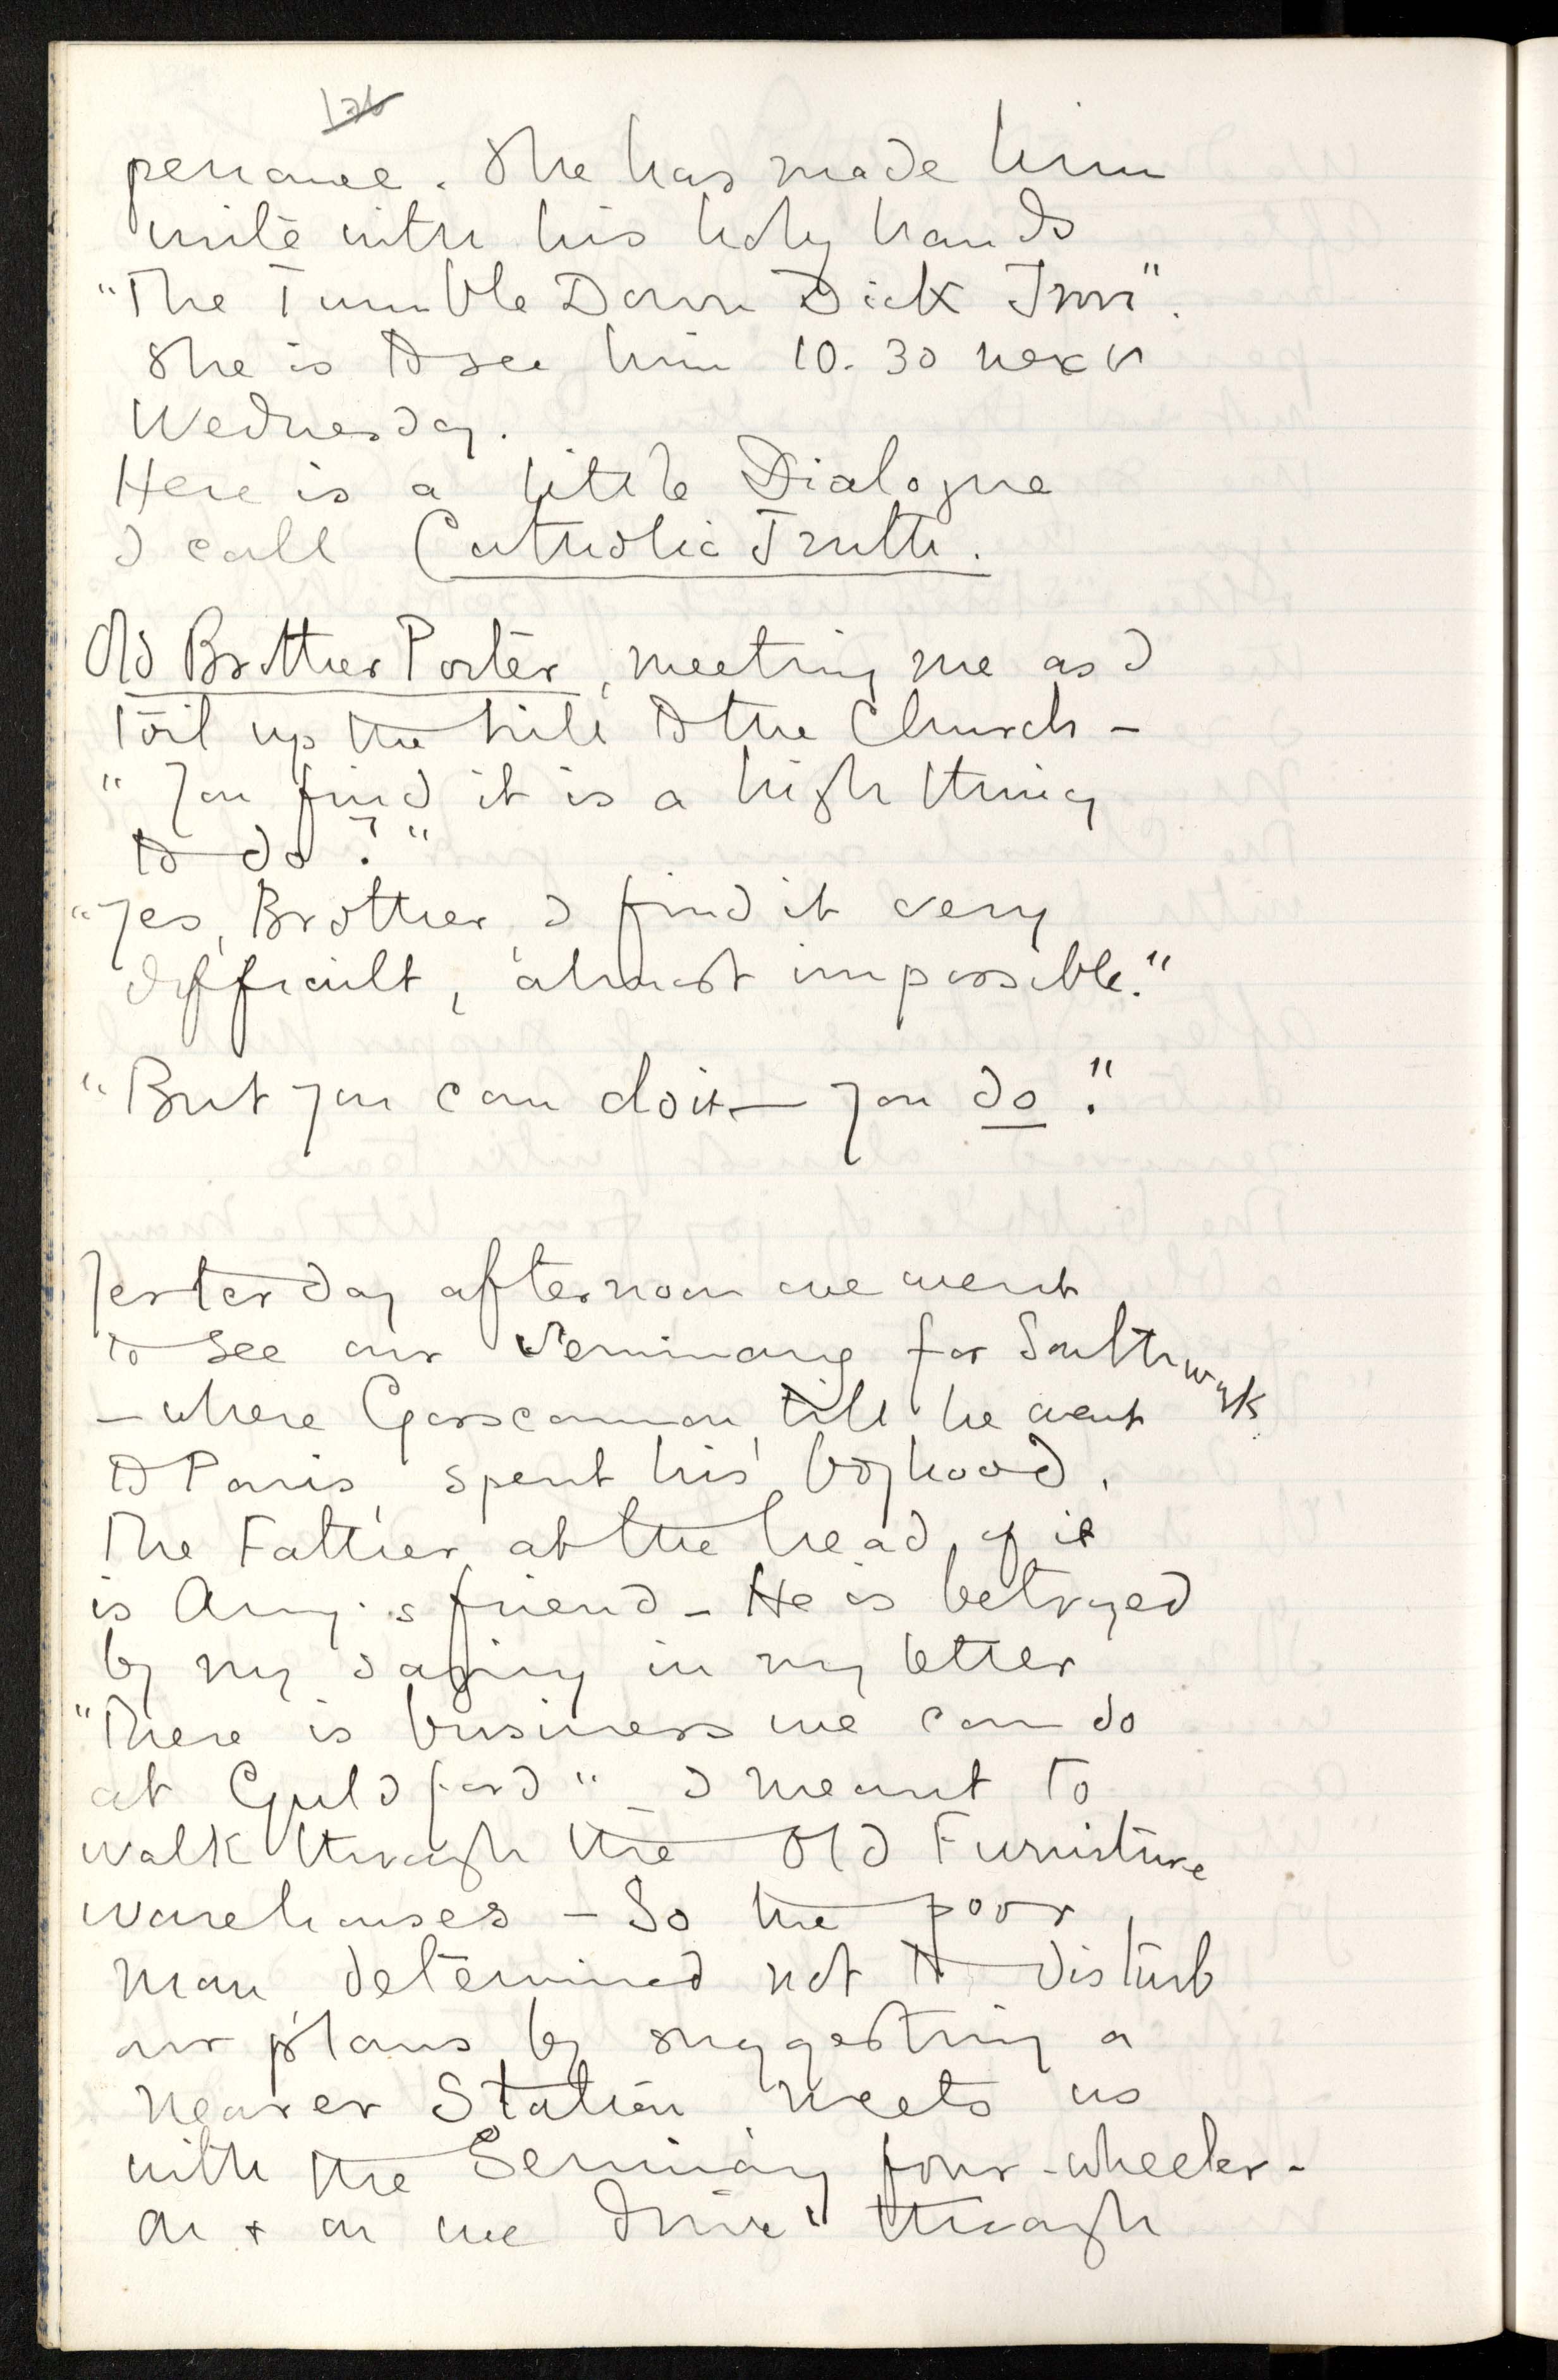 126
penance. She has made him
write with his holy hands
"The Tumble Down Dick Inn".
She is to see him 10.30 next
Wednesday.
Here is a little Dialogue
I call Catholic Truth.
Old Brother Porter, meeting me as I
toil up the hill to the Church –
"You find it is a high thing
to do?"
"Yes, Brother, I find it very
difficult, almost impossible."
"But you can do it – you do."
Yesterday afternoon we went
to see our Seminary for Southwark
– where Gosscannon, till he went
to Paris, spent his boyhood.
The Father at the head of it
is Amy's friend – He is betrayed
by my saying in my letter
"There is business we can do
at Guldford" – I meant to
walk through the Old Furniture
warehouses – So the poor
man determined not to disturb
our plans by suggesting a
nearer Station meets us
with the Seminary four-wheeler –
On & on we drive through